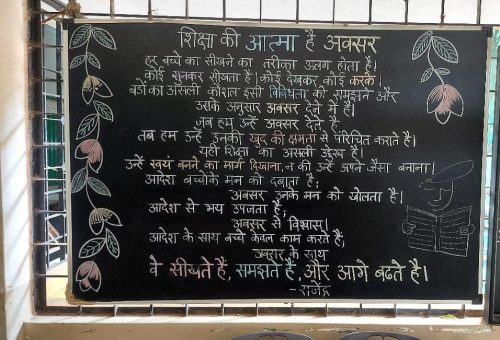 शिक्षा की आत्मा है अवसर
हर बच्चे का सीखने का तरीका अलग होता है।
कोई सुनकर सीखता है। कोई देखकर, कोई करके।
बडों का असली कौशल इसी विविधता को समझने और
उसके अनुसार अवसर देने में है।
जब हम उन्हें अवसर देते है,
तब हम उन्हें उनकी खुद की क्षमता से परिचित कराते है।
यही शिक्षा का असली उद्देश्य है।
उन्हें स्वयं बनने का मार्ग दिखाना, न की उन्हें अपने जैसा बनाना।
आदेश बच्चोंके मन को दबाता है;
अवसर उनके मन को खोलता है।
आदेश से भय उपजता है;
अवसर से विश्वास।
आदेश के साथ बच्चे केवल काम करते हैं;
अवसर के साथ
वे सीखते हैं, समझते हैं, और आगे बढते है।
- राजेंद्र